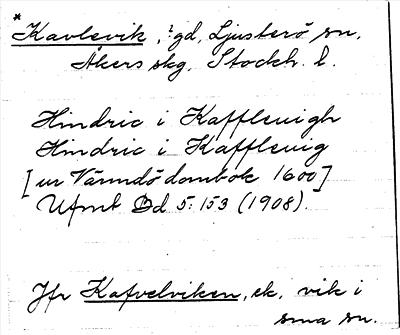 * Kavlevik, ? gd, Ljusterö sn.
Åkers skg, Stockh. l.
Hindric i Kafflevigh
Hindric i Kafflevig
[ur Värmdö dombok 1600]
Ufmt Dd 5:153 (1908).
Jfr Kafvelviken, ek, vik i
sma sn.